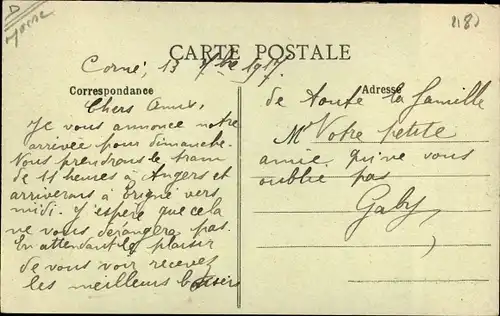 D
Morse
2182
CARTE POSTALE
Corné, 13 7bre 1917
Correspondance
Adresse
Chers Amis,
Je vous annonce notre
arrivée pour dimanche.
Nous prendrons le tram
de 11 heures à Angers et
arriverons à Erigné vers
midi. J'espère que cela
ne vous dérangera pas.
En attendant le plaisir
de vous voir recevez
les meilleurs baisers
de toute la famille
Votre petite
amie qui ne vous
oublie pas
Gaby